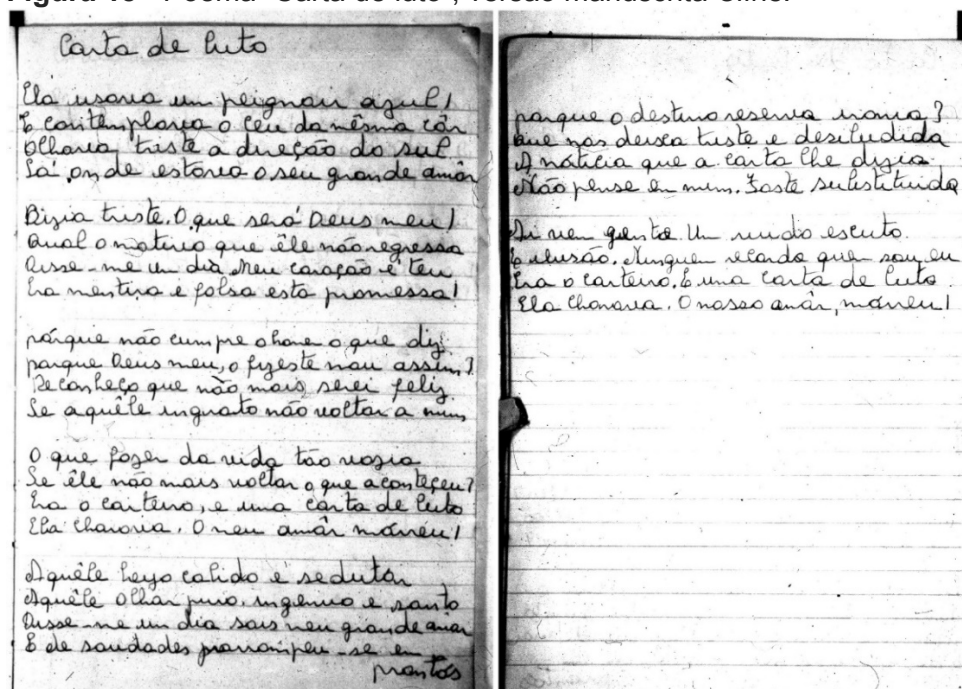 Carta de luto
Ela usava um peignoir azul!
E contemplava o céu da mêsma côr
Olhava triste a direção do sul
Lá, onde estava o seu grande amôr
Dizia triste. O que será Deus meu!
Qual o motivo que êle não regressa
Disse-me um dia Meu coração é teu
Era mentira e falsa esta promessa!
pórque não cumpre o home o que diz
porque Deus meu, o fizeste mau assim?
Reconheço que não mais serei feliz
Se aquêle ingrato não voltar a mim
O que fazer da vida tão vazia
Se êle não mais voltar o que aconteçeu?
Era o carteiro, e uma carta de luto
Ela chorava. O meu amôr morreu!
Aquêle beijo calido e sedutor
Aquêle olhar puro, ingenuo e santo
Disse-me um dia sois meu grande amor
E de saudades prorrompeu-se em
prantos
porque o destino reserva ironia?
Que nos deixa triste e desiludida
A noticia que a carta lhe dizia
Não pense em mim. Foste substituida
Ai vem gente. Um ruido escuto
É ilusão. Ninguem recorda quem sou eu
Era o carteiro. E uma carta de luto
Ela chorava. O nosso amôr, morreu!